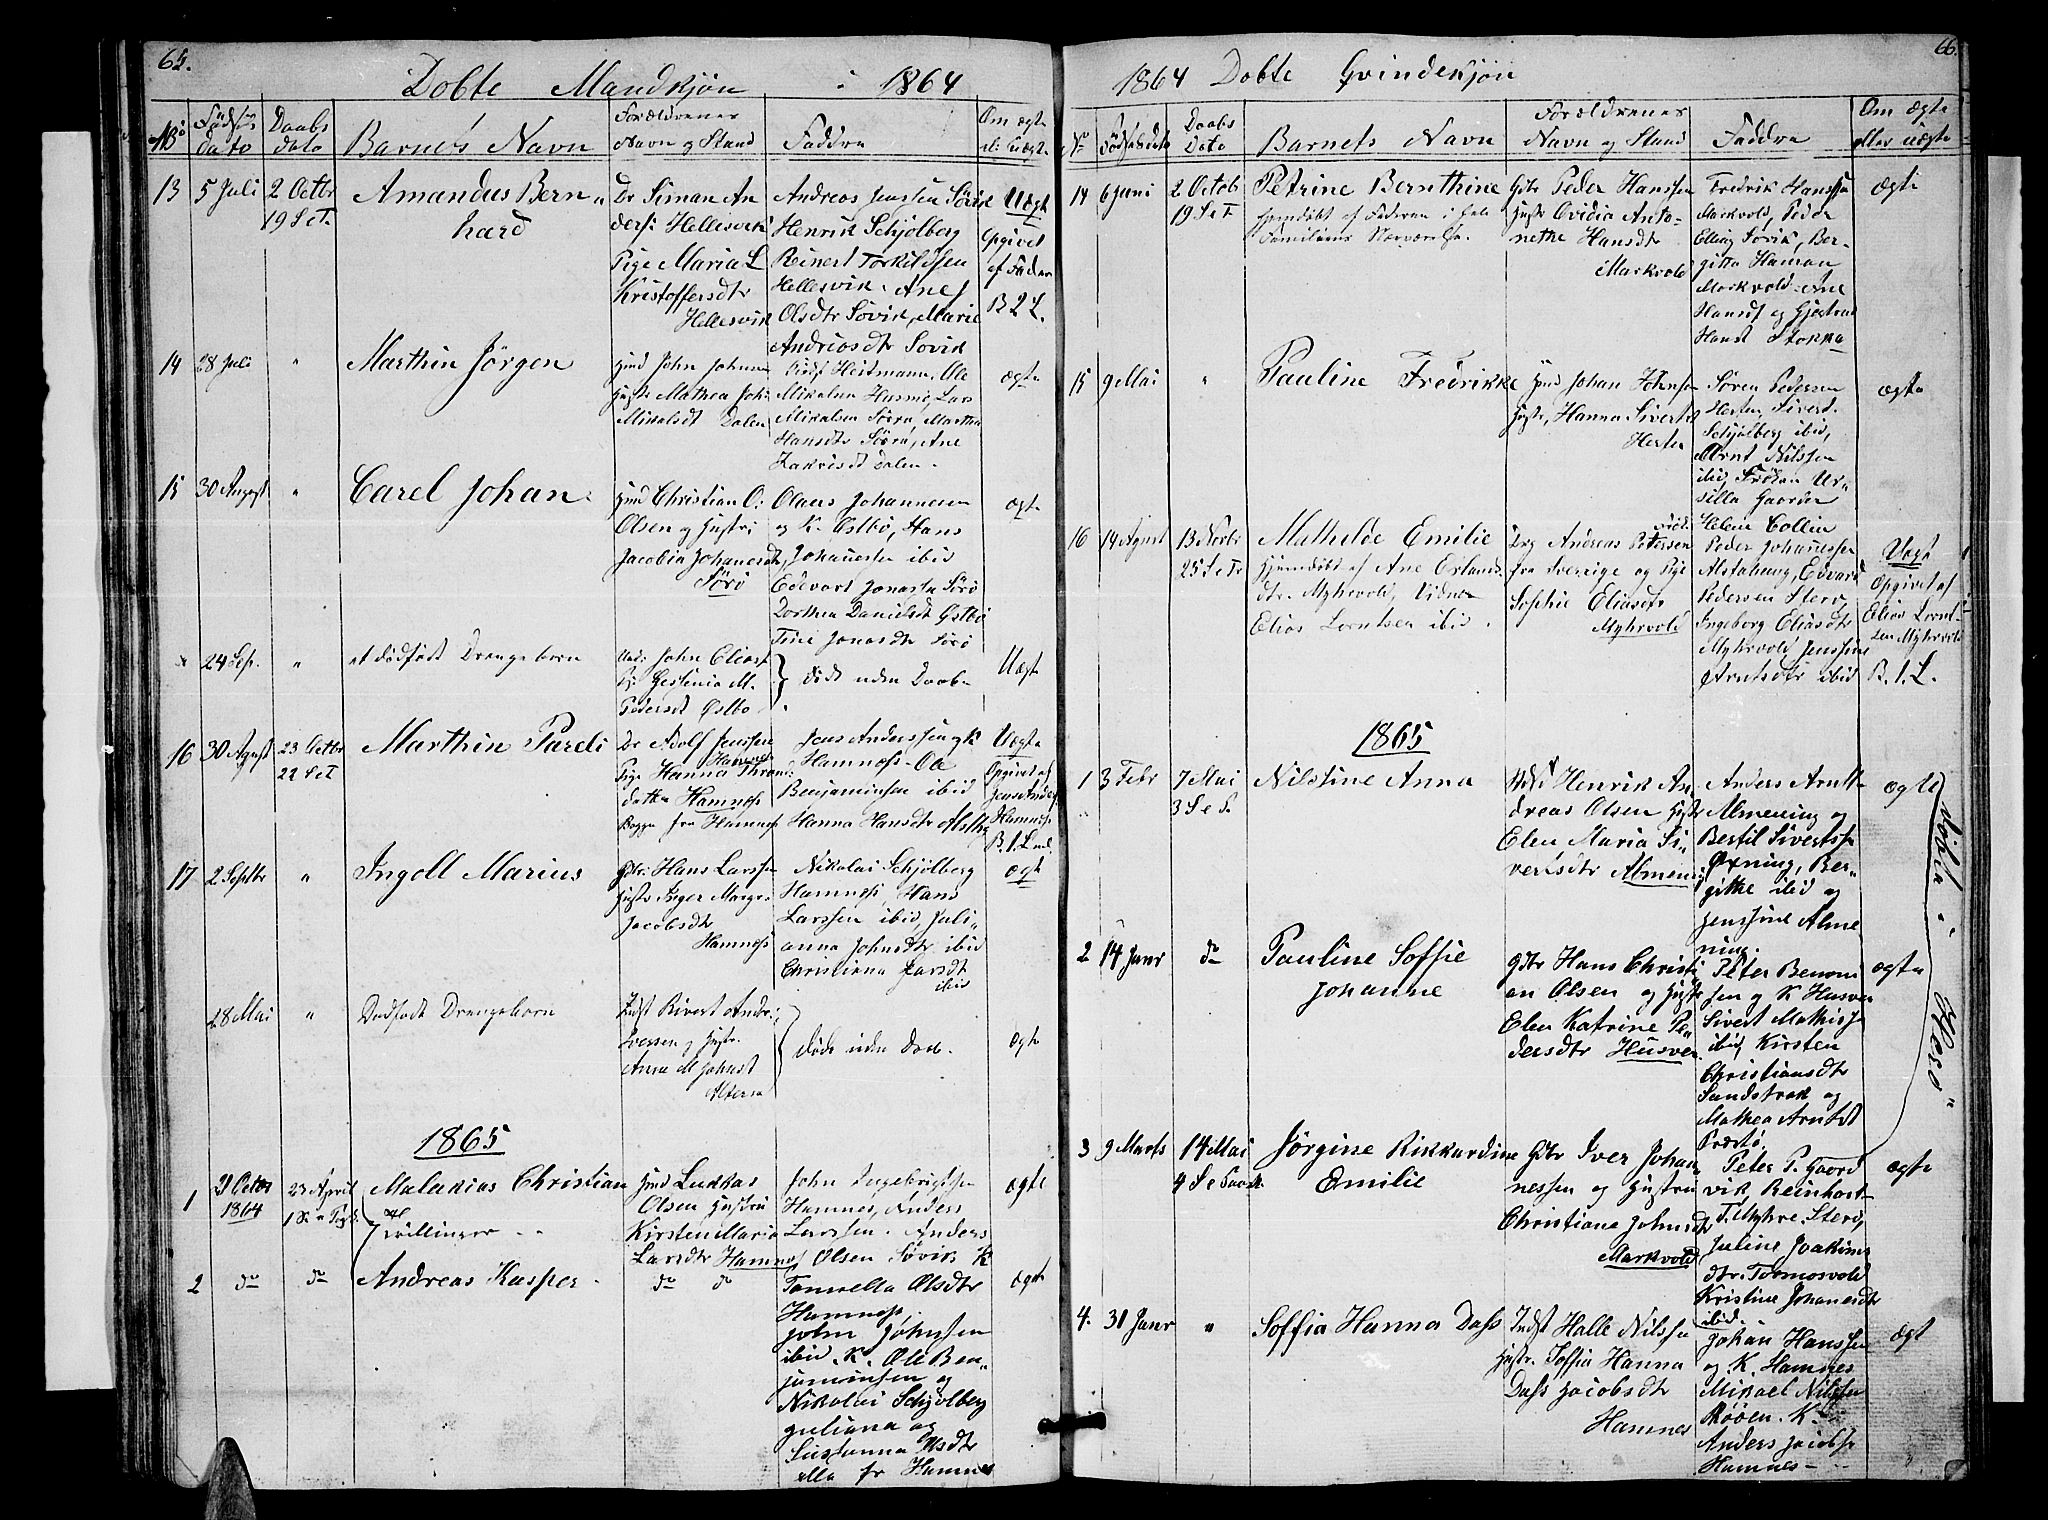 65.
Døbte Mandkjøn i 1864
No Fødsels dato Daabs dato Barnets Navn Forældrenes Navn og Stand Faddre Om ægte el: Uægte
13 5 Juli 2 Octbr 19 S e T. Amandus Bernhard
Dr Siman Andersi Hellesvik
Pige Maria L
Kristoffersdtr
Hellesvik
Andreas Jenssen Sövik
Henrik Schjølberg
Reinert Torkildsen
Hellesvik. Ane J
Olsdtr Søvik, Marie
Andreasdtr Søvik
Uægt
Opgivet
af Fader
B 2 L.
14 28 Juli " Marthin Jørgen
hmd John Johann
hustr Mathea Joh:
Mikalsdt Dalen
Heitmann. Ole
Mikalsen Husmo, Lars
Mikalsen Sörra, Martha
Hansdtr Sörra, Ane
Zakrisdt Dalen.
ægte
15 30 August " Carel Johan
hmd Christian O:
Olsen og hustr:
Jacobia Johanesdt,
Sörö
Olaus Johannesen
og K. Østbö, Hans
Johannesen ibid
Edevart Jonassen Sörö
Dorthea Danielsdt Østbö
Tine Jonasdtr Sörö
ægte
24 Sep. " et dødfødt Drengebarn
John Eliass
Gestinia M.
Pedersdt Østbo
døde uden Daab
Uægt
16 30 August 23 Octbr 22 S e T Marthin Pareli
Dr Adolf Jenssen
Hamnes
Pige Hanna Thrond
datter Hamness
Begge fra Hamness
Jens Anderssen g K
Hamness - Ole
Benjaminsen ibid
Hanna Hansdtr
Uægte
Opgivet af
Jens Anders
Hamness
B. 1. L.
17 2 Septbr " Ingell Marius
Gdbr: Hans Larssen
hustr Inger Marge
Jacobsdtr
Hamness
Nikolai Schjölberg
Hamness, Hans
Larssen ibid, Juli
anna Johnsdtr ibid
Christianna Larsdt
ibid
ægt
28 Mai " Dødfødt Drengebarn
Indst Sivert Andr:
Iversen og hustr.
Anna M Johnsdt
Alteren
døde uden Daab.
ægt
1865
1 21 Octbr 1864 23 April Malakias Christian
Tvillinger
hmd Ludkas
Olsen hustru
Kirsten Maria
Larsdtr Hamnes
John Ingebrigtsen
Hamnes, Anders
Larssen. Anders
Olsen Søvik K
ægte
2 do do Andreas Kasper
do do
Pannella Olsdtr
Hamness.
John Johnsen
ibid. K. Ole Ben
jaminsen og
Nikolai Schjölberg
Juliana og
Susanna Olsdtr
alle fr Hamnes
ægte
66.
1864 Døbte Qvindekjøn
No Fødselsdato Daabs Dato Barnets Navn Forældrenes Navn og Stand Faddre Om ægte eller uægte
14 6 Juni 2 Octob 19 S e T Petrine Bernthine
hjemdøbt af Faderen i hele
Familiens Nærværelse.
Gbr Peder Hanssen
hustr Ovidia Anto-
nethe Hansdtr
Markvold
Fredrik Hanssen
Markvold, Peder
Elling Sövik, Ber-
gitta Haman
Markvold. Ane
Hansdt og Gjertrud
Hansdt Stokka
ægte
15 9 Mai " Pauline Fredrikke
hmd Johan Johnsen
hustr, Hanna Sivertsd
Hesten
Sören Pedersen
Hesten, Sivert
Schjølberg ibid,
Arnt Nilssen
ibid, Frøken Ur-
silla Gaarder
ægte
16 14 August 13 Novbr 25 S e Tr Mathilde Emilie
hjemdöbt af Ane Erlands
dtr. Myhrvold, Vidne
Elias Lorntsen ibid.
Andreas Petersen
fra Sverrige og Pige
Sophie Eliasdtr
Myhrvold
Frøk. Helene Collin
Peder Johannessen
Alstahaug, Edvard
Pedersen Sterø,
Ingeborg Eliasdtr
Myhrvold Jenssine
Arntsdtr ibid
Uægt
Opgivet af
Elias Lornt
sen Myhrvold
B. 1. L.
1865
1 3 Febr 7 Mai 3 S e P. Nilstine Anna
Indst Henrik An
dreas Olsen hustr
Elen Maria Si
vertsdtr Almening
Anders Arntt
Almening og
Bertil Sivertssen
Öxning, Ber-
githe ibid og
Jenssine Alme
ning.
ægte
2 14 Janr do Pauline Soffie
Johanne
Gdbr Hans Christi
an Olsen og hustr
Elen Katrine Pe
dersdtr Husvær
Peter Benoni
sen og K Husvær
Sivert Mathiss
ibid, Kirsten
Christiansdtr
Sandstrak og
Mathea Arntsd
Præstö.
ægte
døbt i Herø
3 9 Marts 14 Mai 4 S e Paask. Jørgine Rikkardine
Emilie
Gbr Iver Johan
nessen og hustru
Christiana Johnsdtr
Markvold
Peter P. Haard
vik, Reinhart
T. Myhre. Sterø,
Juline Joakims
dtr. Tormosvold
Kristine Johanesdtr
ibid.
ægte
4. 31 Janr " Soffia Hanna Dass
Indst Halle Nilssen
hustr. Soffia Hanna
Dass Jacobsdtr
Hamnes
Johan Hanssen
og K. Hamnes
Mikael Nilssen
Røöen. K.
Anders Jacobse
Hamnes
ægt